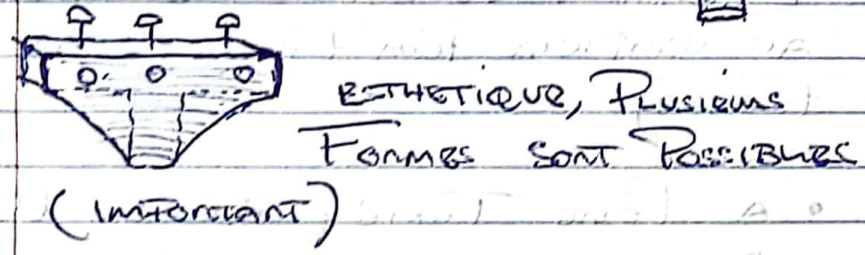 ESTHETIQUE, PLUSIEURS
FORMES SONT POSSIBLES
(IMPORTANT)